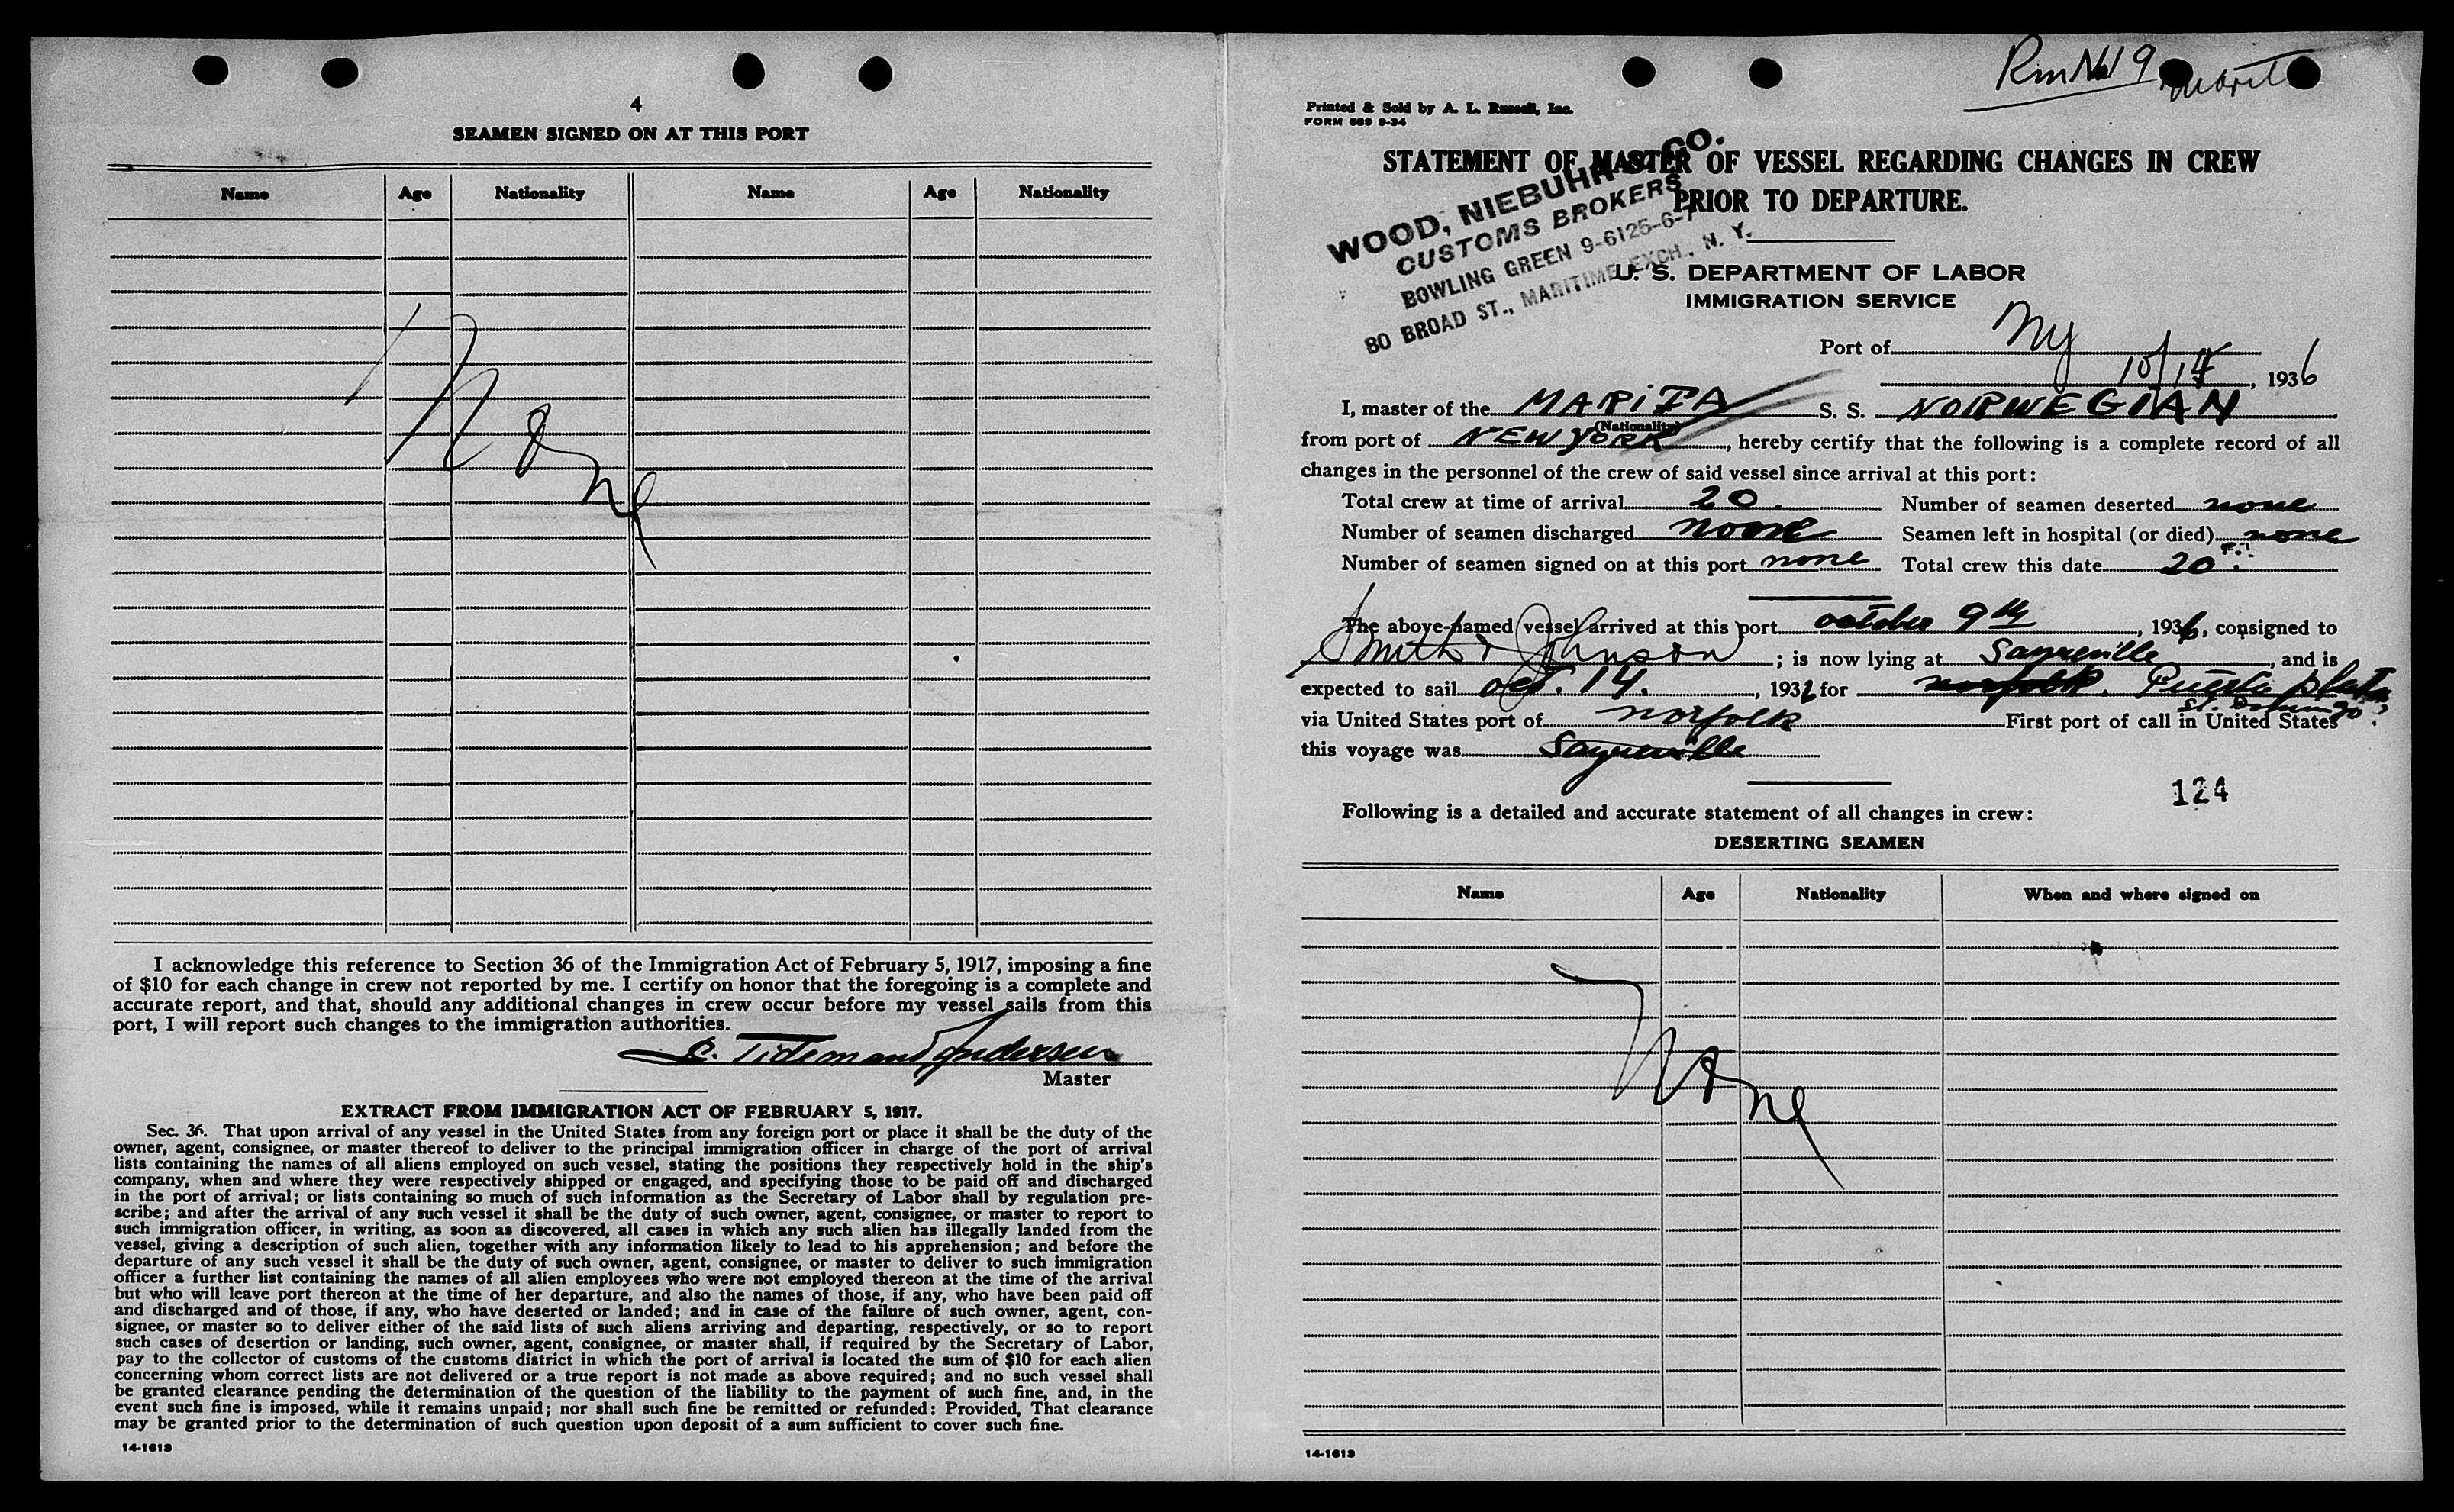 4
SEAMEN SIGNED ON AT THIS PORT
Name Age Nationality Name Age Nationality
None
I acknowledge this reference to Section 36 of the Immigration Act of February 5, 1917, imposing a fine
of $10 for each change in crew not reported by me. I certify on honor that the foregoing is a complete and
accurate report, and that, should any additional changes in crew occur before my vessel sails from this
port, I will report such changes to the immigration authorities.
Tidemand Andersen
Master
EXTRACT FROM IMMIGRATION ACT OF FEBRUARY 5, 1917.
Sec. 36. That upon arrival of any vessel in the United States from any foreign port or place it shall be the duty of the
owner, agent, consignee, or master thereof to deliver to the principal immigration officer in charge of the port of arrival
lists containing the names of all aliens employed on such vessel, stating the positions they respectively hold in the ship's
company, when and where they were respectively shipped or engaged, and specifying those to be paid off and discharged
in the port of arrival; or lists containing so much of such information as the Secretary of Labor shall by regulation pre-
scribe; and after the arrival of any such vessel it shall be the duty of such owner, agent, consignee, or master to report to
such immigration officer, in writing, as soon as discovered, all cases in which any such alien has illegally landed from the
vessel, giving a description of such alien, together with any information likely to lead to his apprehension; and before the
departure of any such vessel it shall be the duty of such owner, agent, consignee, or master to deliver to such immigration
officer a further list containing the names of all alien employees who were not employed thereon at the time of the arrival
but who will leave port thereon at the time of her departure, and also the names of those, if any, who have been paid off
and discharged and of those, if any, who have deserted or landed; and in case of the failure of such owner, agent, con-
signee, or master so to deliver either of the said lists of such aliens arriving and departing, respectively, or so to report
such cases of desertion or landing, such owner, agent, consignee, or master shall, if required by the Secretary of Labor,
pay to the collector of customs of the customs district in which the port of arrival is located the sum of $10 for each alien
concerning whom correct lists are not delivered or a true report is not made as above required; and no such vessel shall
be granted clearance pending the determination of the question of the liability to the payment of such fine, and, in the
event such fine is imposed, while it remains unpaid; nor shall such fine be remitted or refunded: Provided, That clearance
may be granted prior to the determination of such question upon deposit of a sum sufficient to cover such fine.
14-1613
Printed & Sold by A. L. Russell, Inc.
FORM 689 9-34
STATEMENT OF MASTER OF VESSEL REGARDING CHANGES IN CREW
PRIOR TO DEPARTURE.
WOOD, NIEBUHR & CO.
CUSTOMS BROKERS
BOWLING GREEN 9-6125-6-7
80 BROAD ST., MARITIME EXCH., N. Y.
U. S. DEPARTMENT OF LABOR
IMMIGRATION SERVICE
Port of NY
10/14, 1936
I, master of the MARITA S. S. NORWEGIAN
(Nationality)
from port of NEW YORK, hereby certify that the following is a complete record of all
changes in the personnel of the crew of said vessel since arrival at this port:
Total crew at time of arrival 20. Number of seamen deserted none
Number of seamen discharged none Seamen left in hospital (or died) none
Number of seamen signed on at this port none Total crew this date 20.
The above-named vessel arrived at this port october 9th, 1936, consigned to
Smith & Johnson; is now lying at Sayreville, and is
expected to sail oct. 14., 193 for norfolk. Puerto plata
St. Domingo
via United States port of norfolk First port of call in United States
this voyage was Sayreville
124
Following is a detailed and accurate statement of all changes in crew:
DESERTING SEAMEN
Name Age Nationality When and where signed on
None
14-1613